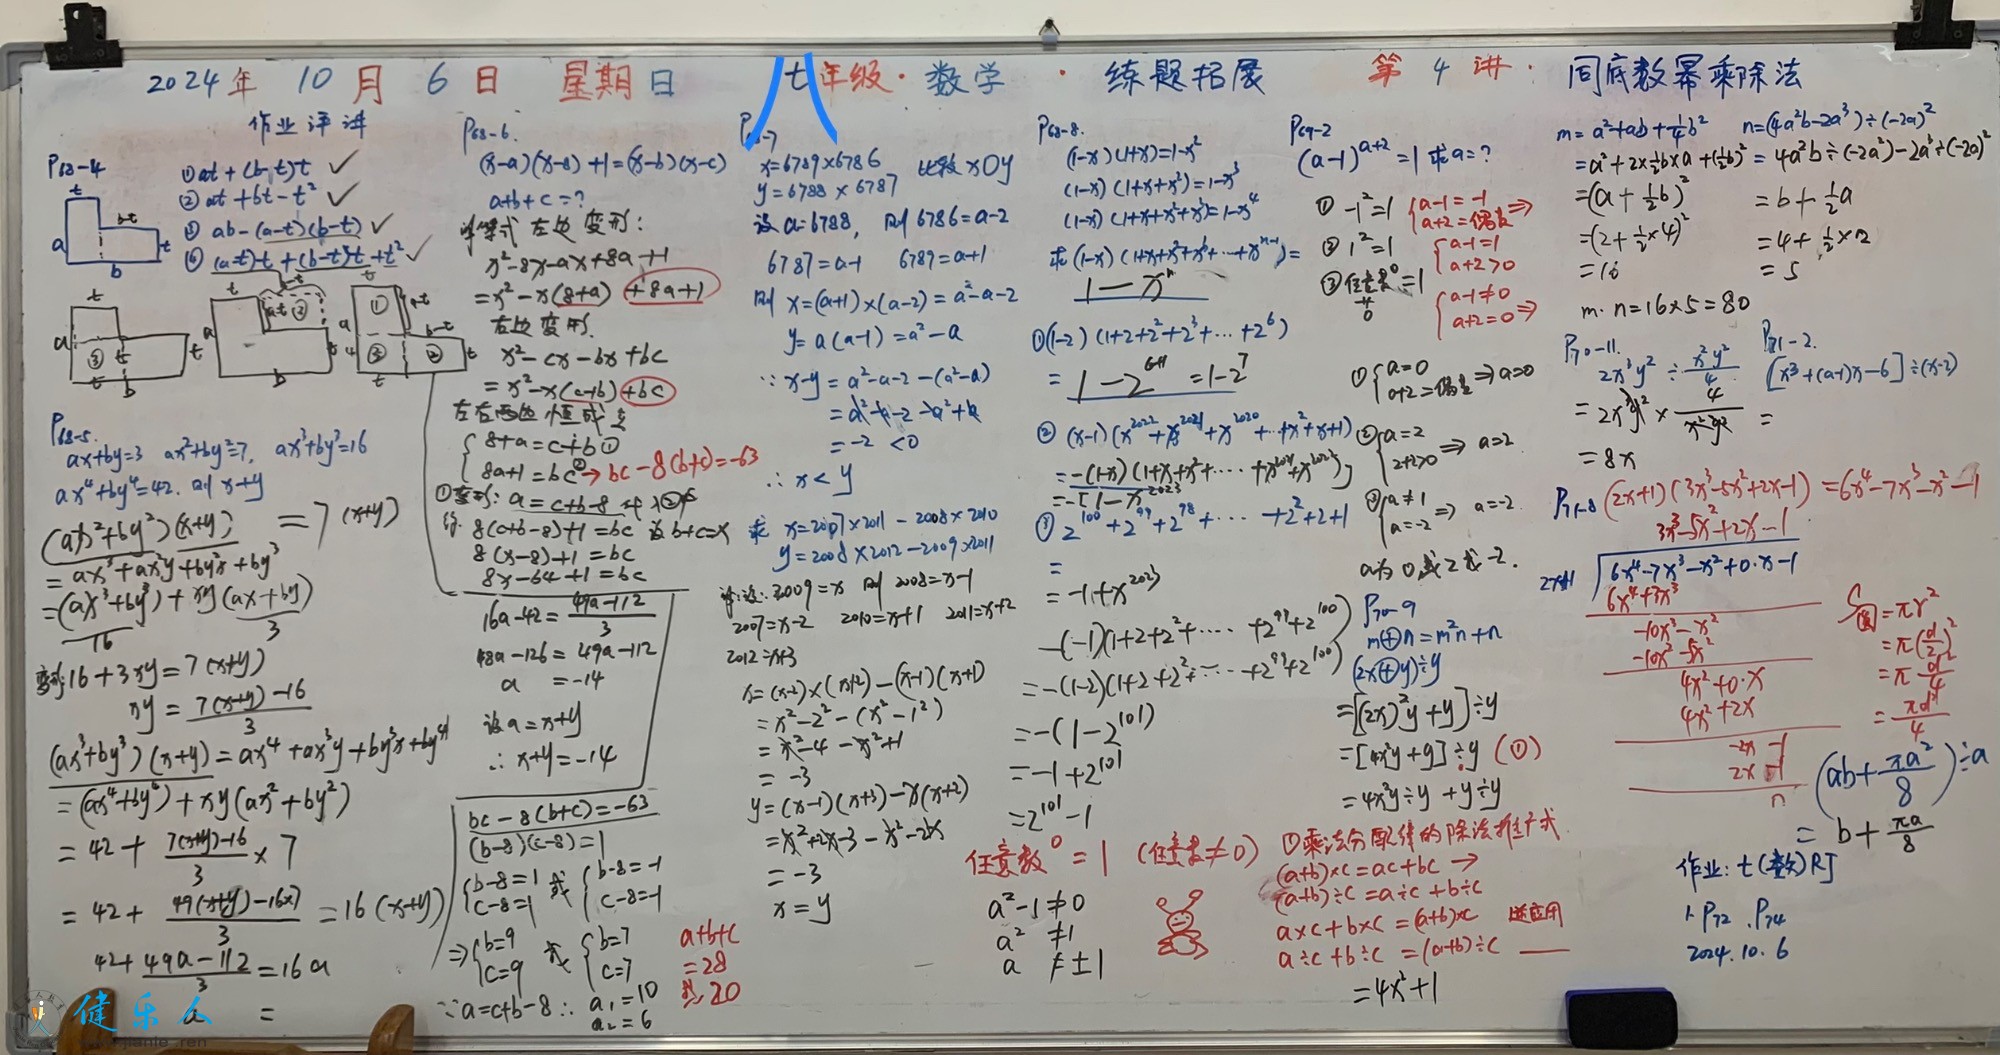 2024年 10月 6日 星期日 八年级·数学 · 练题拓展 第 4 讲· 同底数幂乘除法
作业评讲
P68-4
①at+(b-t)t ✓
②at+bt-t² ✓
③ab-(a-t)(b-t) ✓
④(a-t)t+(b-t)t+t² ✓
P68-5.
ax+by=3 ax²+by²=7, ax³+by³=16
ax⁴+by⁴=42. 则 x+y
(ax²+by²)(x+y) =7(x+y)
=ax³+ax²y+by²x+by³
=(ax³+by³)+xy(ax+by)
16 3
变形:16+3xy=7(x+y)
xy=\frac{7(x+y)-16}{3}
(ax³+by³)(x+y)=ax⁴+ax³y+by³x+by⁴
=(ax⁴+by⁴)+xy(ax²+by²)
=42+\frac{7(x+y)-16}{3}×7
=42+\frac{49(x+y)-16×7}{3}=16(x+y)
42+\frac{49a-112}{3}=16a
a =
P68-6.
(x-a)(x-8)+1=(x-b)(x-c)
a+b+c=?
详:等式左边变形:
x²-8x-ax+8a+1
=x²-x(8+a)+8a+1
右边变形.
x²-cx-bx+bc
=x²-x(c+b)+bc
左右两边恒成立
8+a=c+b①
8a+1=bc②→bc-8(b+c)=-63
①变形:a=c+b-8 代入②得
得:8(c+b-8)+1=bc 设b+c=x
8(x-8)+1=bc
8x-64+1=bc
16a-42=\frac{49a-112}{3}
48a-126=49a-112
a =-14
设a=x+y
∴x+y=-14
bc-8(b+c)=-63
(b-8)(c-8)=1
{b-8=1 或 {b-8=-1
c-8=1 c-8=-1
⇒{b=9 或 {b=7
c=9 c=7
∵a=c+b-8∴ a₁=10
a₂=6
a+b+c
=28
或20
P68-7
x=6789×6786 比较x○y
y=6788×6787
设a=6788, 则6786=a-2
6787=a-1 6789=a+1
则 x=(a+1)×(a-2)=a²-a-2
y=a(a-1)=a²-a
∵x-y=a²-a-2-(a²-a)
=a²-a-2-a²+a
=-2 <0
∴x<y
求 x=2007×2011-2008×2010
y=2008×2012-2009×2011
详:设:2009=x 则2008=x-1
2007=x-2 2010=x+1 2011=x+2
2012=x+3
x=(x-2)×(x+2)-(x-1)(x+1)
=x²-2²-(x²-1²)
=x²-4-x²+1
=-3
y=(x-1)(x+3)-x(x+2)
=x²+2x-3-x²-2x
=-3
x=y
P68-8.
(1-x)(1+x)=1-x²
(1-x)(1+x+x²)=1-x³
(1-x)(1+x+x²+x³)=1-x⁴
求(1-x)(1+x+x²+x³+…+xⁿ⁻¹)=
1-xⁿ
①(1-2)(1+2+2²+2³+…+2⁶)
=1-2⁶⁺¹=1-2⁷
②(x-1)(x²⁰²²+x²⁰²¹+x²⁰²⁰+…+x²+x+1)
=-(1-x)(1+x+x²+……+x²⁰²¹+x²⁰²²)
=-[1-x²⁰²³
③2¹⁰⁰+2⁹⁹+2⁹⁸+……+2²+2+1
=
=-1+x²⁰²³
-(-1)(1+2+2²+……+2⁹⁹+2¹⁰⁰)
=-(1-2)(1+2+2²+……+2⁹⁹+2¹⁰⁰)
=-(1-2¹⁰¹)
=-1+2¹⁰¹
=2¹⁰¹-1
任意数⁰=1(任意数≠0)
a²-1≠0
a² ≠1
a ≠±1
P69-2
(a-1)ᵃ⁺²=1 求a=?
①-1²=1 {a-1=-1
a+2=偶数⇒
②1²=1 {a-1=1
a+2>0
③任意数⁰=1 {a-1≠0
a+2=0⇒
①{a=0
a+2=偶数⇒a=0
②{a=2
2+2>0⇒a=2
③{a≠1
a=-2⇒a=-2
a为0或2或-2.
P70-9
m⊕n=m²n+n
(2x⊕y)÷y
=[(2x)²y+y]÷y
=[4x²y+y]÷y (①)
=4x²y÷y+y÷y
①乘法分配律的除法推广式
(a+b)×c=ac+bc→
(a+b)÷c=a÷c+b÷c
a×c+b×c=(a+b)×c 逆应用
a÷c+b÷c=(a+b)÷c
=4x²+1
m=a²+ab+¼b² n=(4a²b-2a³)÷(-2a)²
=a²+2×½b×a+(½b)² =4a²b÷(-2a)²-2a³÷(-2a)²
=(a+½b)² =b+½a
=(2+½×4)² =4+½×2
=16 =5
m·n=16×5=80
P70-11.
2x³y²÷\frac{x²y²}{4}
=2x³y²×\frac{4}{x²y²}
=8x
P71-2.
[x³+(a-1)x-6]÷(x-2)
=
P71-8 (2x+1)(3x³-5x²+2x-1)=6x⁴-7x³-x²-1
3x³-5x²+2x-1
2x+1 6x⁴-7x³-x²+0·x-1
6x⁴+3x³
-10x³-x²
-10x³-5x²
4x²+0·x
4x²+2x
-2x-1
-2x-1
0
S圆=πr²
=π(\frac{d}{2})²
=π\frac{d²}{4}
=\frac{πd²}{4}
(ab+\frac{πa²}{8})÷a
=b+\frac{πa}{8}
作业:七(数)RJ
1.P72.P74
2024.10.6
健乐人